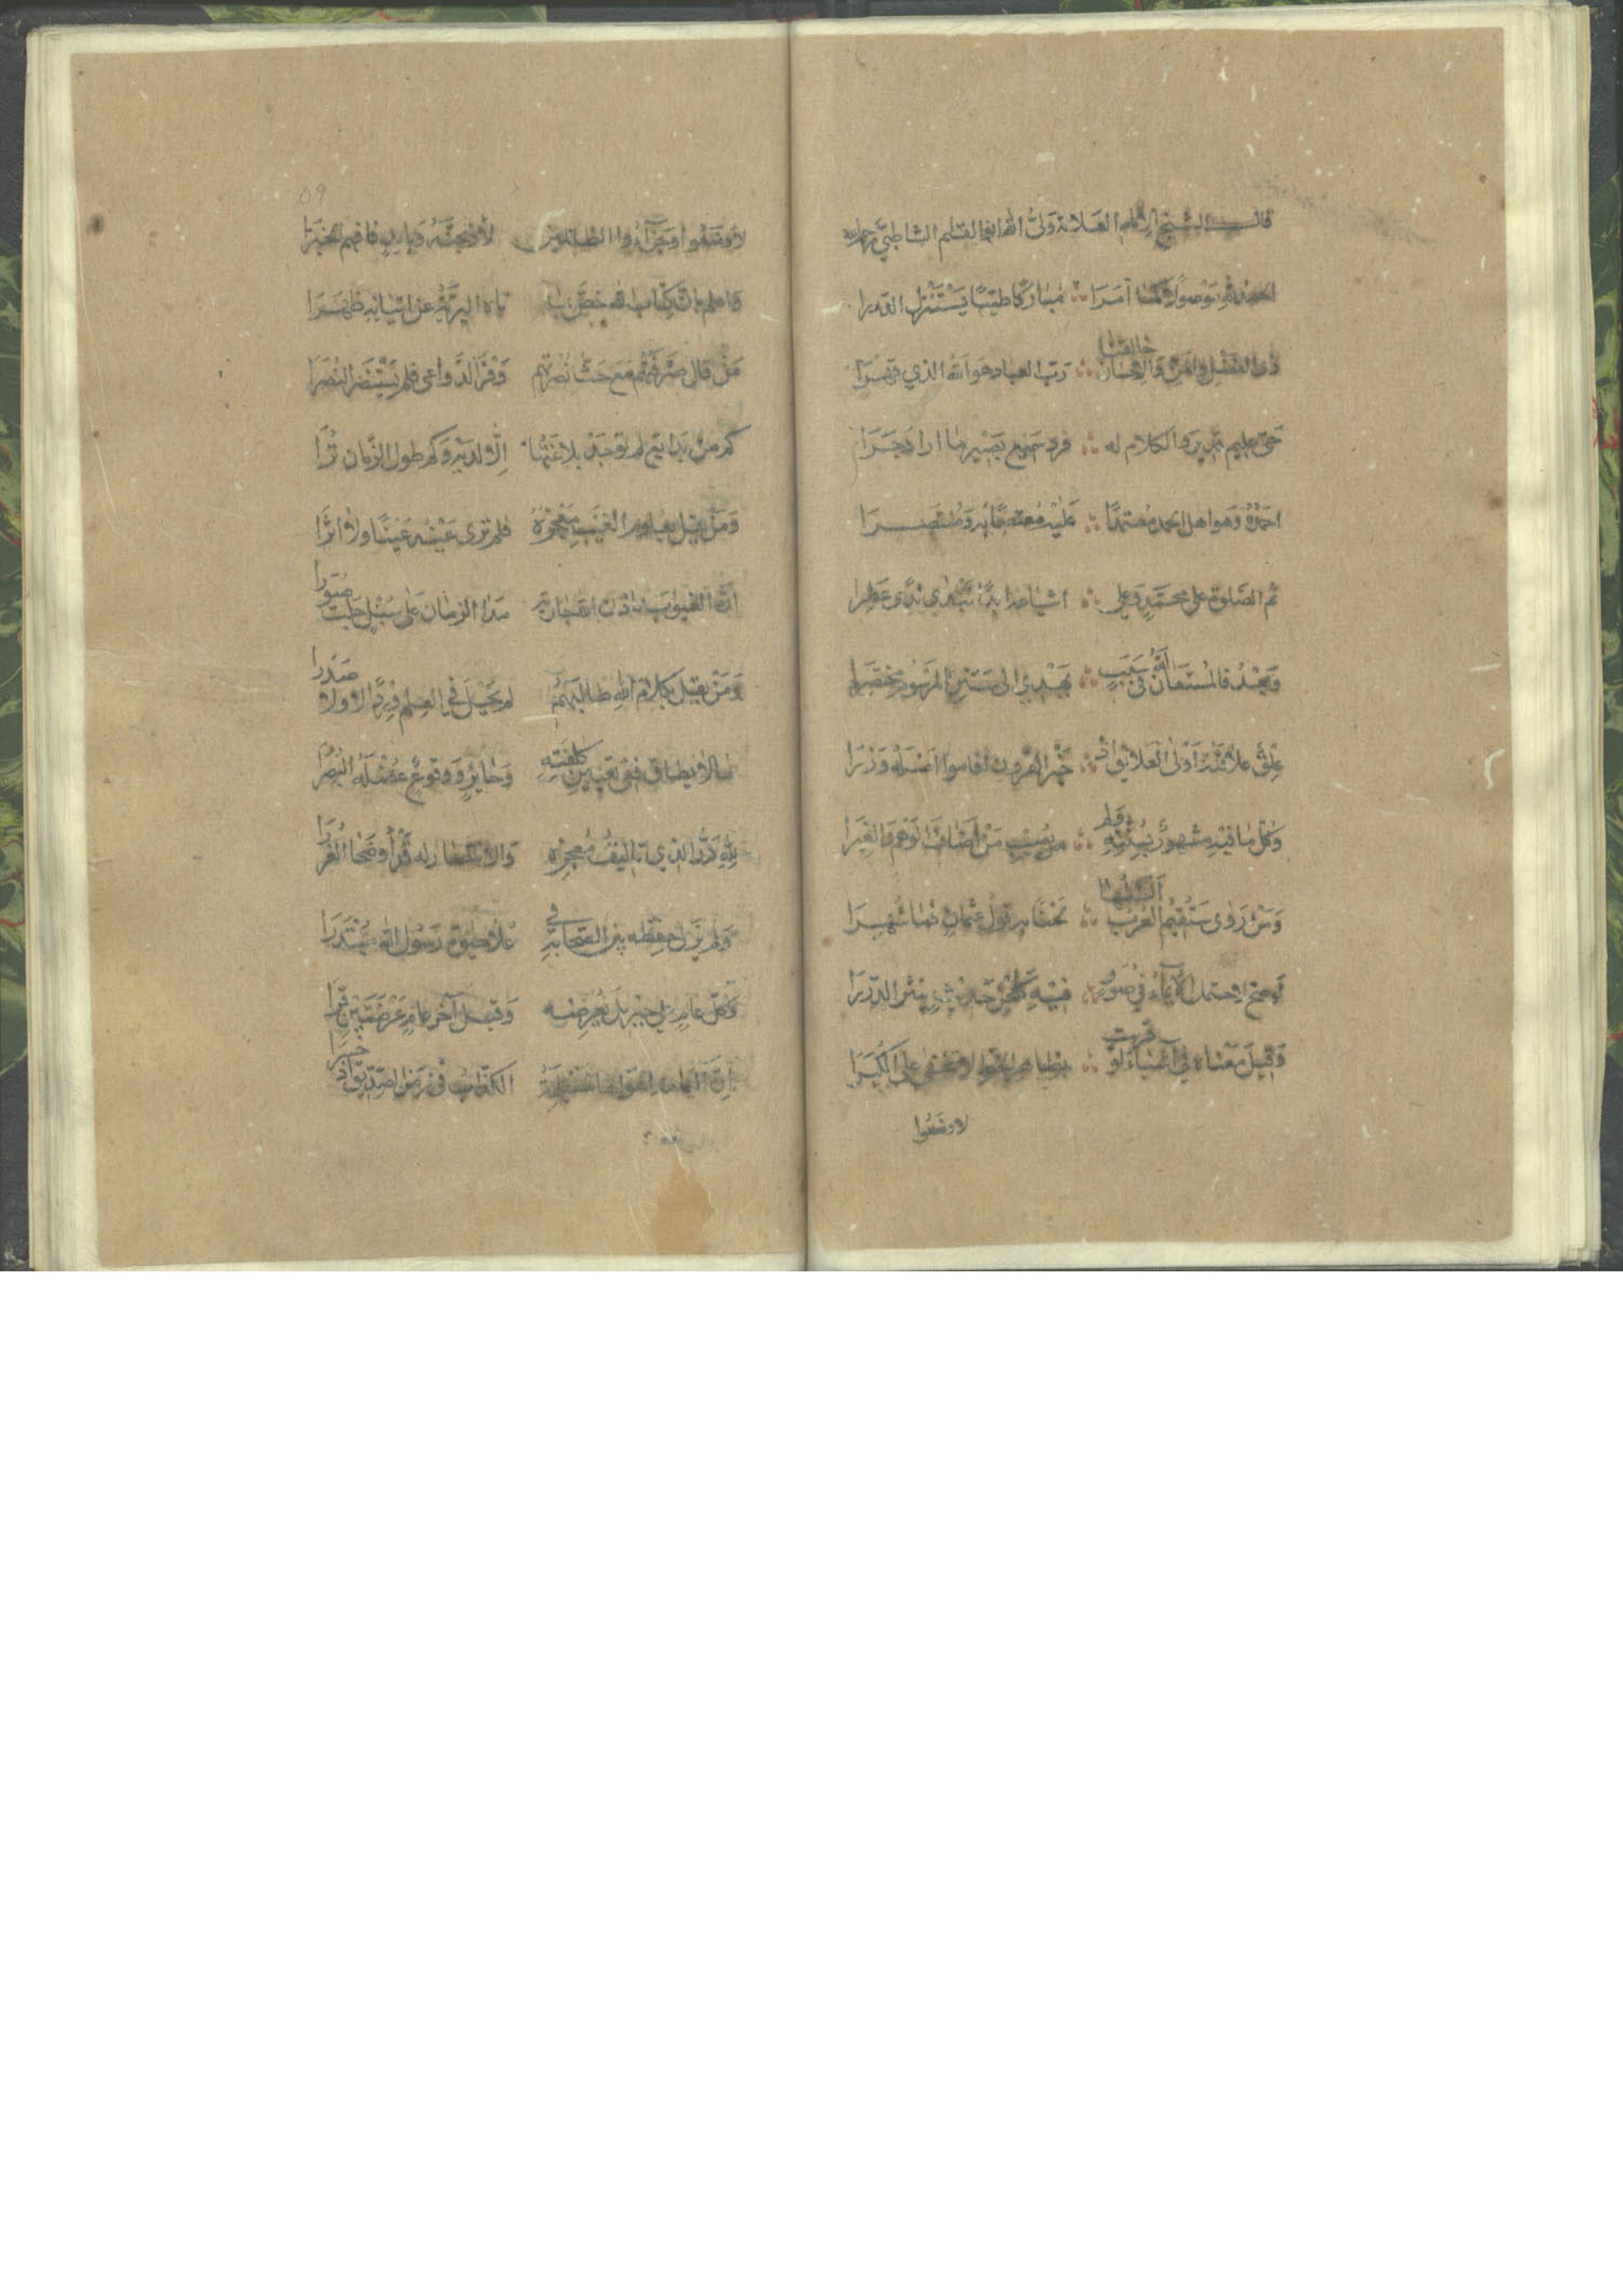 قال الشيخ الامام العلامة ولى الله ابو القسم الشاطبي رحمه الله
الحمد لله موصولا كما امرا مباركا طيبا يستنزل الدررا
ذى الفضل والمن والاحسان خالقنا رب العباد هو الله الذي قهرا
حي عليم قدير والكلام له فرد سميع بصير ما اراد جرا
احمده وهو اهل الحمد معتمدا عليه معتصما به ومنتصرا
ثم الصلوة على محمد وعلى اشياعه ابدا تندى ندى عطرا
وبعد فالمستعان الله في سبب يهدي الى سنن المرسوم مختصرا
علق علائقه اولى العلائق اذ خير القرون اقاموا اصله وزرا
وكل ما فيه مشهور بسنته ولم يصب من اضاف الوهم والغيرا
ومن روى ستقيم العرب السنها لحنا به قول عثمان فما شهرا
لو صح لاحتمل الايماء في صور فيه كلحن حديث ينثر الدررا
وقيل معناه في اشياء لو قرئت بظاهر الخط لا تخفى على الكبرا
لاوضعوا
٥٩
لاوضعوا وجزاؤا الظالمين لاذبحنه وبايد فافهم الخبرا
واعلم بان كتاب الله خص بما تاه البرية عن اتيانه ظهرا
من قال صرفتهم مع حث نصرتهم وفر الدواعى فلم يستنصر النصرا
كم من بدايع لم توجد بلاغتها الا لديه وكم طول الزمان ترا
ومن يقل بعلوم الغيب معجزه فلم ترى عينه عينا ولا اثرا
ان الغيوب باذن الله جارية مدا الزمان على سبل جلت صورا
ومن يقل بكلام الله طالبهم لم يحل في العلم وردا لا ولا صدرا
ما لا يطاق ففي تعيين كلفته وجايز ووقوع عضلة البصرا
لله در الذي تاليف معجزه والانتصار له قد اوضحا الغررا
ولم يزل حفظه بين الصحابة في علا حيوة رسول الله مبتدرا
وكل عام على جبريل يعرضه وقيل آخر عام عرضتين قرا
ان اليمامة اهواها مسيلمة الكذاب في زمن الصديق اذ خسرا